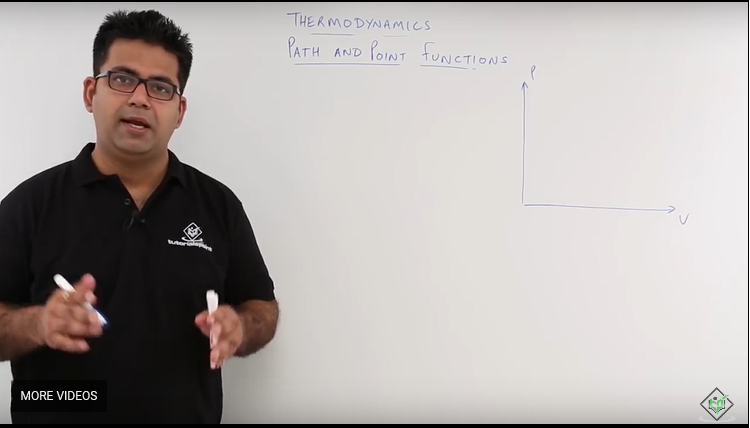 THERMODYNAMICS
PATH AND POINT FUNCTIONS
P
V
tutorialspoint
MORE VIDEOS